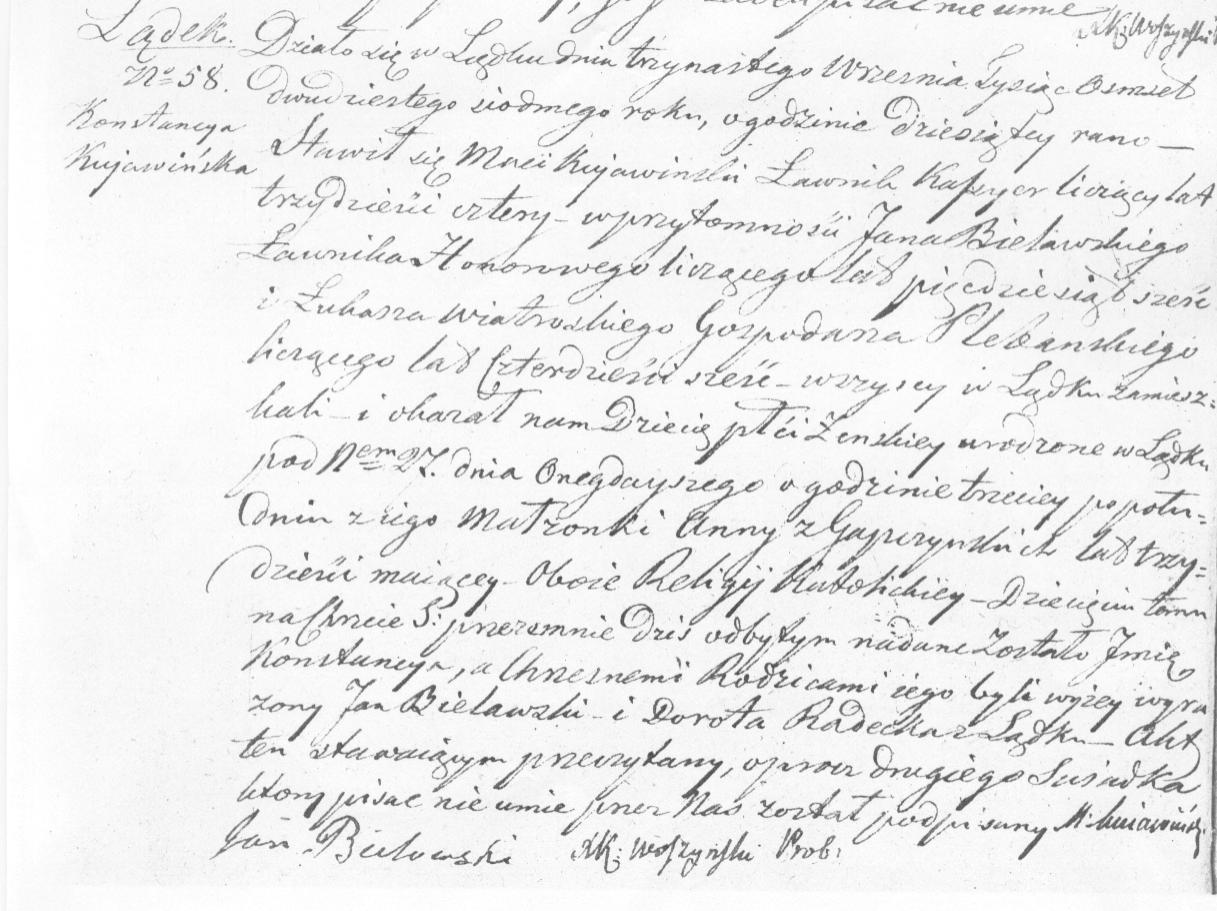 pisac nie umie
XK: Woszyński
Lądek.
No 58.
Konstancya
Kujawińska
Działo się w Lądku dnia trzynastego Wrzesnia Tysiąc Osmset
dwudziestego siodmego roku, o godzinie dziesiątey rano —
Stawił się Maci Kujawinski Ławnik Kassyer liczący lat
trzydzieści cztery – w przytomności Jana Bielawskiego
Ławnika Honorowego liczącego lat pięcdziesiąt sześć
i Łukasza Wiatroskiego Gospodarza Plebanskiego
liczącego lat Czterdzieści sześć – wszyscy w Lądku zamiesz=
kali – i okazał nam Dziecię płci Zenskiey urodzone w Lądku
pod Nem 27. dnia Onegdayszego o godzinie trzeciey popołu=
dniu z iego Małzonki Anny z Gapczynskich lat trzy=
dzieści maiącey – Oboie Religij Katolickiey – Dziecięciu temu
na Chrcie S: przezemnie dzis odbytym nadane zostało Jmię
Konstancya, a Chrzesnemi Rodzicami iego byli wyżey wyra
zony Jan Bielawski – i Dorota Radecka z Lądku – Akt
ten stawaiącym przeczytany, oprocz drugiego Swiadka
ktory pisac nie umie przez Nas został podpisany M. Kuiawiński
Jan Bielawski XK: Woszyński Prob: